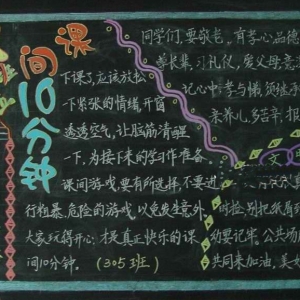 课
间
10
分
钟
下课了,应该放松
一下紧张的情绪,开窗
透透空气,让脑筋清醒
一下,为接下来的学习作准备。
课间游戏要有所选择,不要进
行粗暴、危险的游戏,以免发生意外。
大家玩得开心,才是真正快乐的课
间10分钟。(305班)
同学们,要敬老,有孝心,品德
尊长辈,习礼仪,爱父母,
记心中,孝与
来养儿,多辛苦,报
文
时捡,别把纸屑
幼要记牢,公共场
共同来加油,美